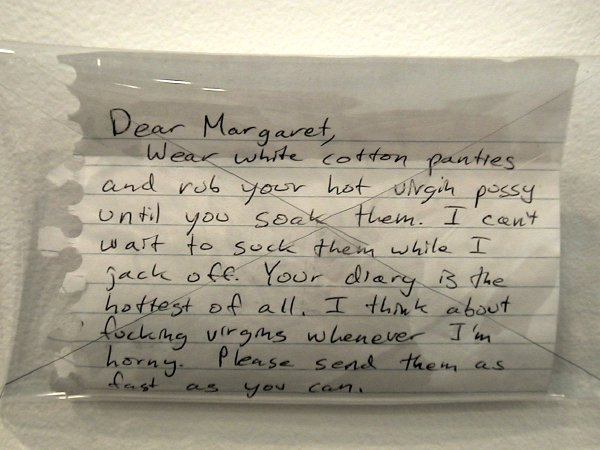 Dear Margaret,
Wear white cotton panties
and rub your hot virgin pussy
until you soak them. I can't
wait to suck them while I
jack off. Your diary is the
hottest of all. I think about
fucking virgins whenever I'm
horny. Please send them as
fast as you can.